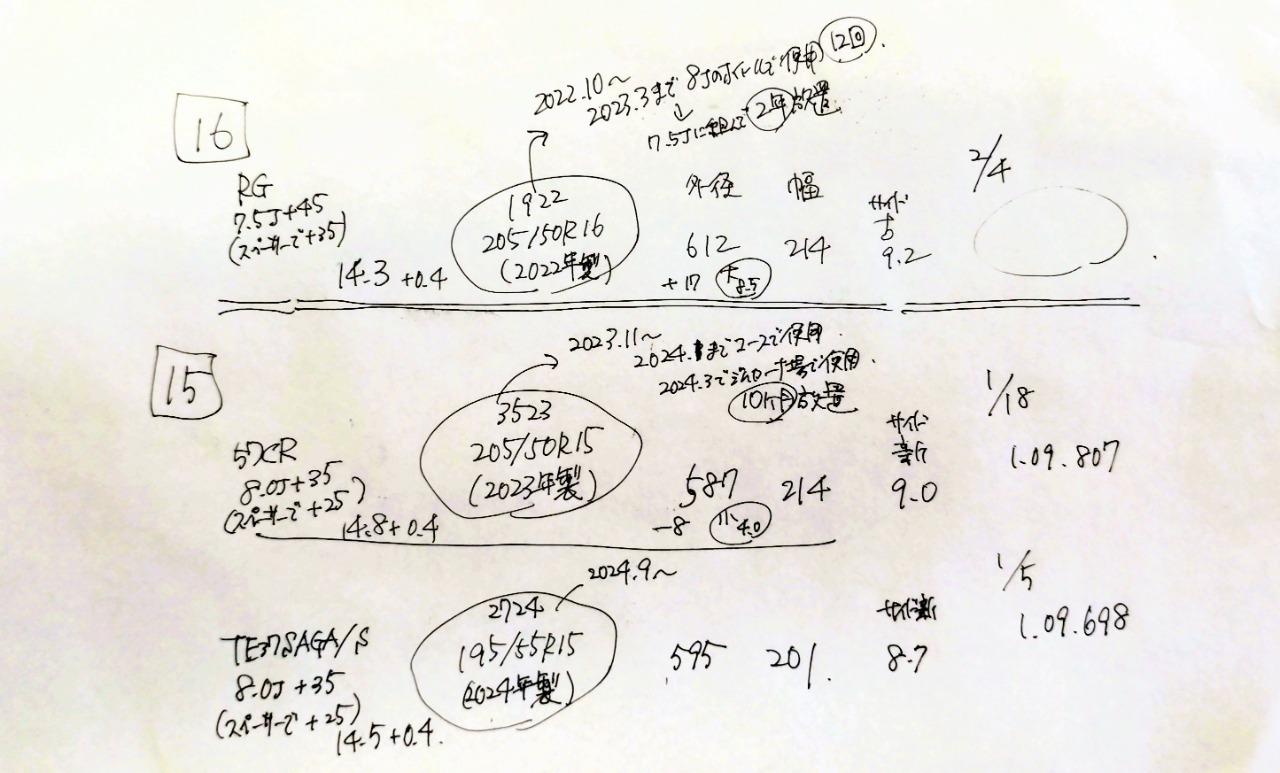 16
2022.10〜
2023.3まで 8Jのホイールで使用 12回.
↓
7.5Jに組んで 2年放置
RG
7.5J+45
(スペーサーで+35)
14.3 +0.4
1922
205/50R16
(2022年製)
外径 幅
612 214
+17 +8.5
サイド
古
9.2
2/4
15
2023.11〜
2024.1までコースで使用.
2024.3でジムカーナ場で使用.
10ヶ月放置
57CR
8.0J+35
(スペーサーで+25)
14.8+0.4
3523
205/50R15
(2023年製)
587 214
-8 4.0
サイド
新
9.0
1/18
1.09.807
2024.9〜
TE37SAGA/S
8.0J+35
(スペーサーで+25)
14.5+0.4.
2724
195/55R15
(2024年製)
595 201.
サイド新
8.7
1/5
1.09.698